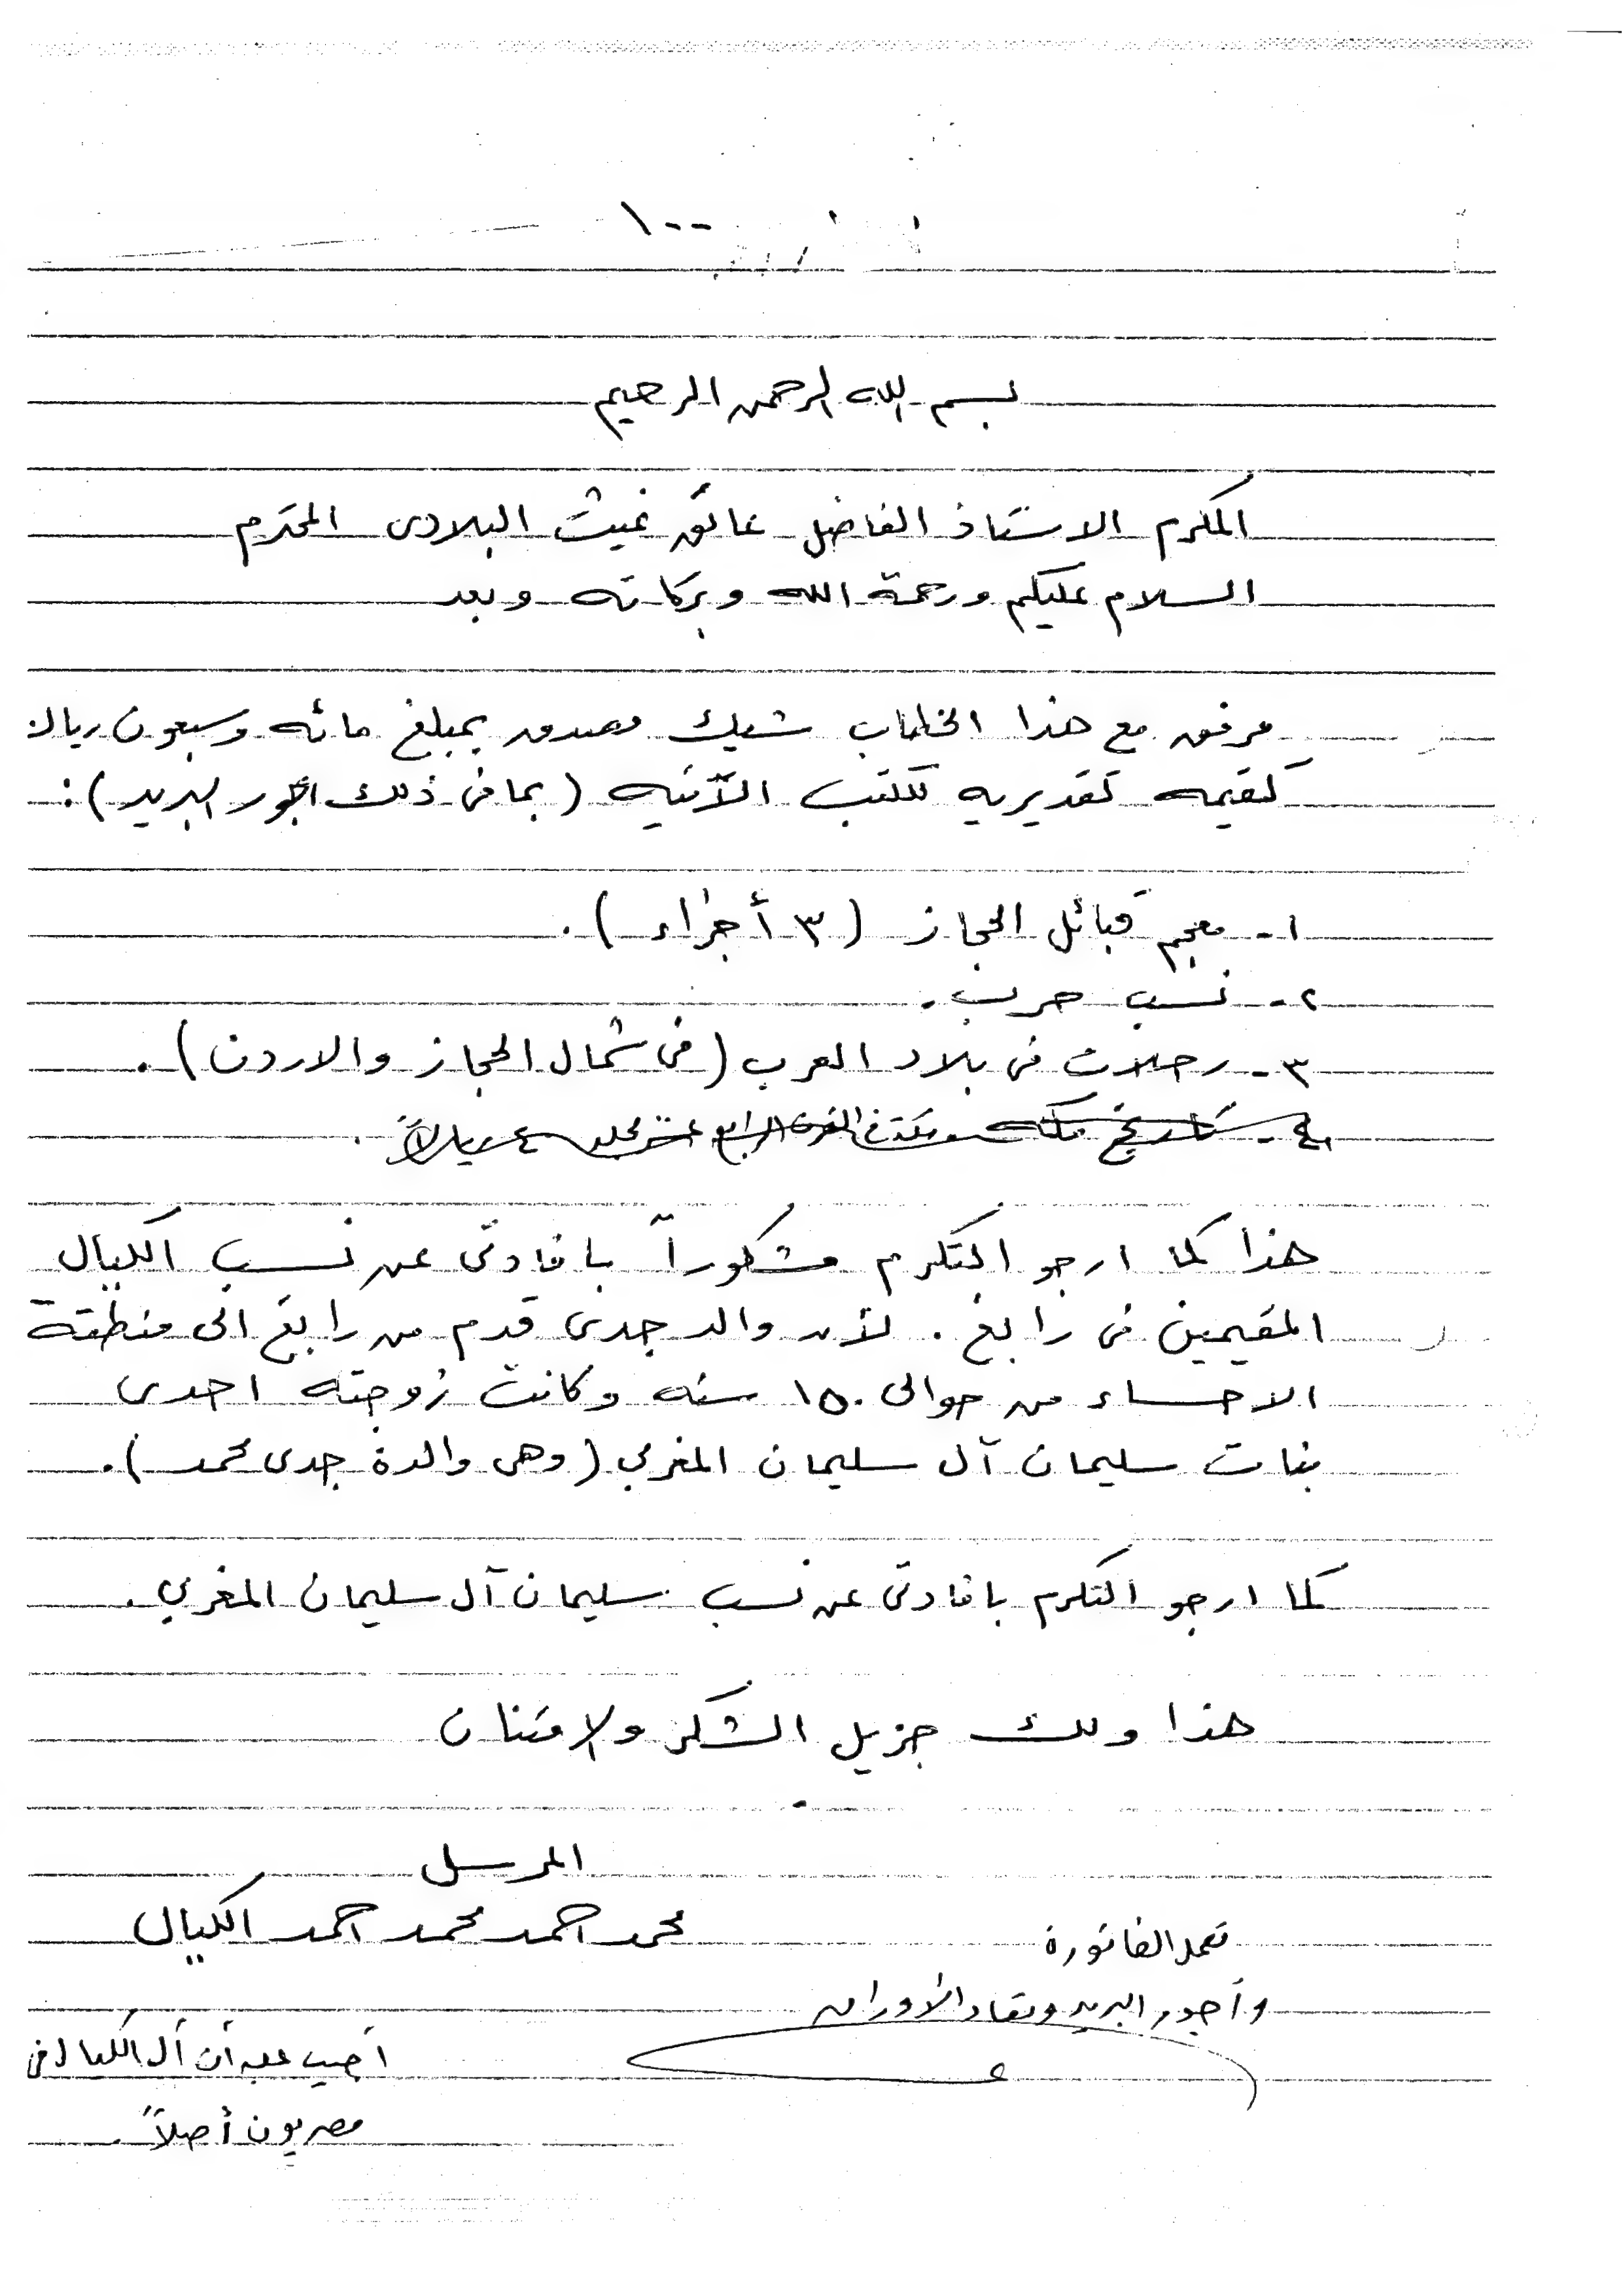 ١٠٠
بسم الله الرحمن الرحيم
المكرم الاستاذ الفاضل عاتق غيث البلادى المحترم
السلام عليكم ورحمة الله وبركاته وبعد
مرفق مع هذا الخطاب شيك مصدق بمبلغ مائه وسبعون ريالا
كقيمه تقديريه للكتب الآتيه (بما فى ذلك اجور البريد):
١- معجم قبائل الحجاز (٣ أجزاء).
٢- نسب حرب.
٣- رحلات فى بلاد العرب (فى شمال الحجاز والاردن).
٤-
هذا كما ارجو التكرم مشكوراً بافادتى عن نسب الكيال
المقيمين فى رابغ. لأن والد جدى قدم من رابغ الى منطقة
الاحساء من حوالى ١٥٠ سنه وكانت زوجته احدى
بنات سليمان آل سليمان المغربي (وهى والدة جدى محمد).
كما ارجو التكرم بافادتى عن نسب سليمان آل سليمان المغربي.
هذا ولك جزيل الشكر والامتنان
المرسل
محمد احمد محمد احمد الكيال
تعمل الفاتورة
وأجور البريد
أجيب عليه أن آل الكيال فى
مصريون أصلاً